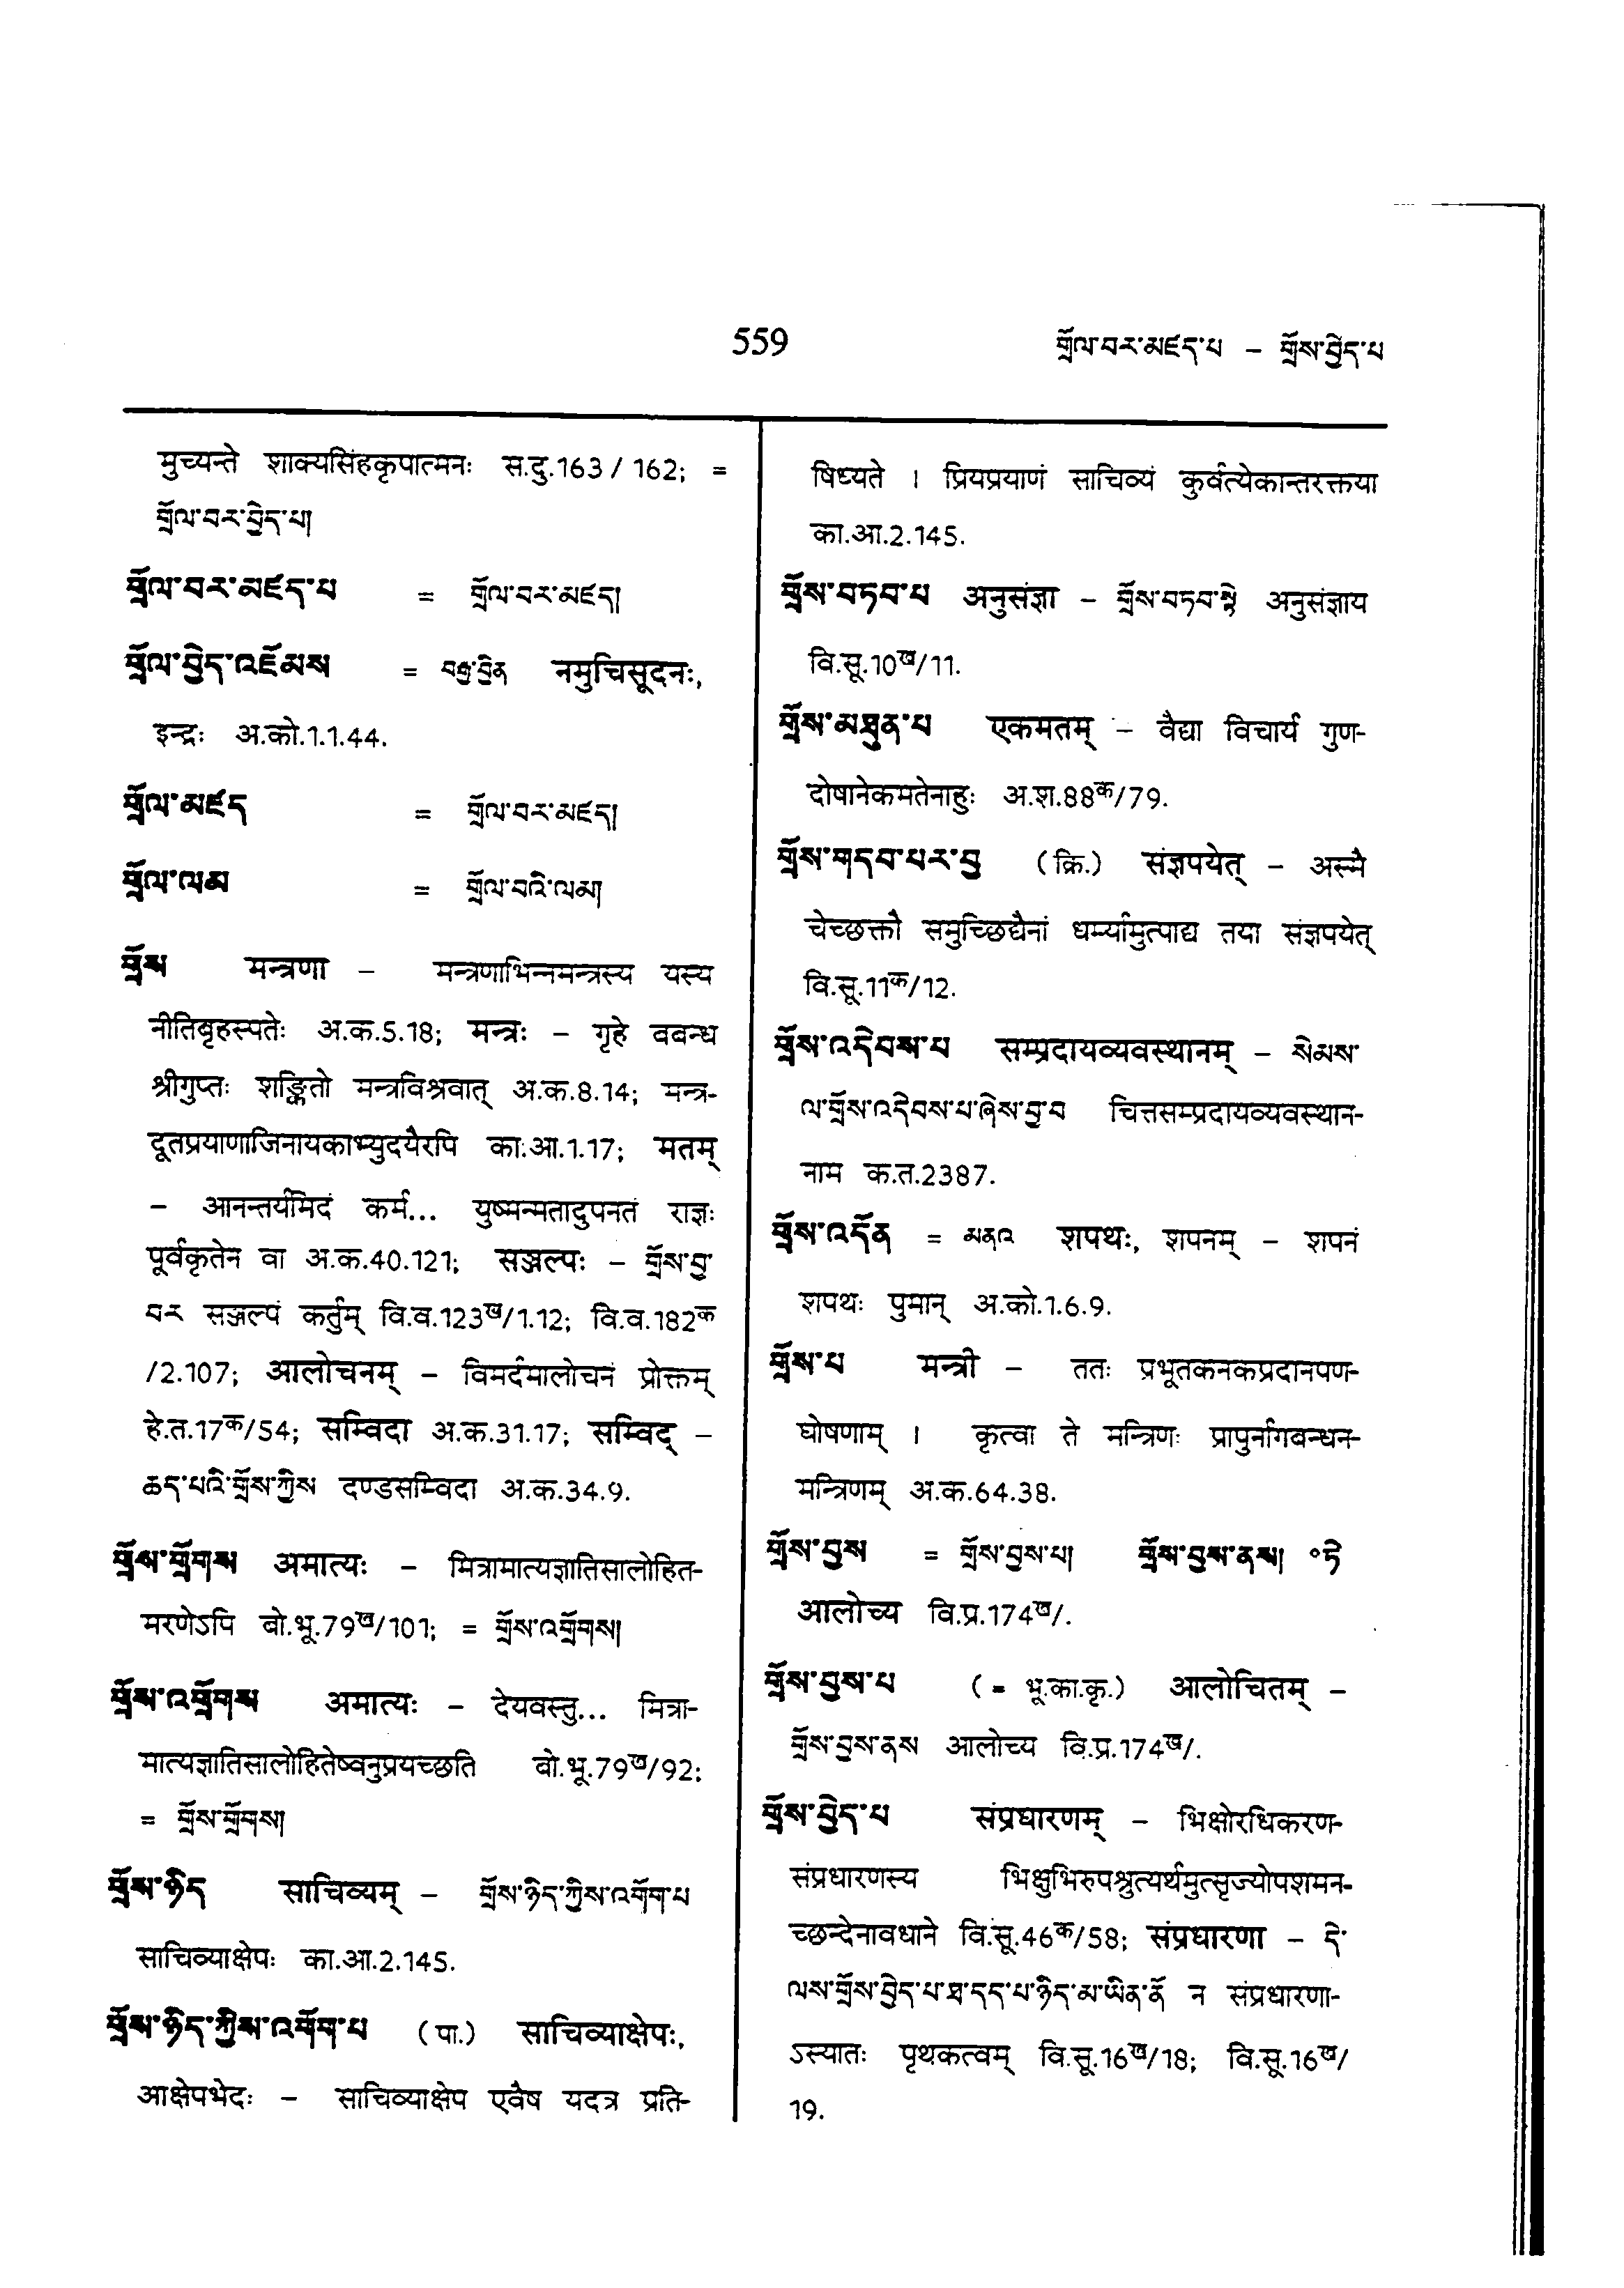 559
གྲོལ་བར་མཛད་པ – གྲོས་བྱེད་པ
मुच्यन्ते शाक्यसिंहकृपात्मनः स.दु.163 / 162; =
གྲོལ་བར་བྱེད་པ།
གྲོལ་བར་མཛད་པ = གྲོལ་བར་མཛད།
གྲོལ་བྱེད་འཇོམས = བརྒྱ་བྱིན नमुचिसूदनः,
इन्द्रः अ.को.1.1.44.
གྲོལ་མཛད = གྲོལ་བར་མཛད།
གྲོལ་ལམ = གྲོལ་བའི་ལམ།
གྲོས मन्त्रणा – मन्त्रणाभिन्नमन्त्रस्य यस्य
नीतिबृहस्पतेः अ.क.5.18; मन्त्रः – गृहे बबन्ध
श्रीगुप्तः शङ्कितो मन्त्रविश्रवात् अ.क.8.14; मन्त्र-
दूतप्रयाणाजिनायकाभ्युदयैरपि का.आ.1.17; मतम्
– आनन्तर्यमिदं कर्म... युष्मन्मतादुपनतं राज्ञः
पूर्वकृतेन वा अ.क.40.121; सञ्जल्पः – གྲོས་བྱ་
བར सञ्जल्पं कर्तुम् वि.व.123ख/1.12; वि.व.182क
/2.107; आलोचनम् – विमर्दमालोचनं प्रोक्तम्
हे.त.17क/54; सम्विदा अ.क.31.17; सम्विद् –
ཆད་པའི་གྲོས་ཀྱིས दण्डसम्विदा अ.क.34.9.
གྲོས་གྲོགས अमात्यः – मित्रामात्यज्ञातिसालोहित-
मरणेऽपि बो.भू.79ख/101; = གྲོས་འགྲོགས།
གྲོས་འགྲོགས अमात्यः – देयवस्तु... मित्रा-
मात्यज्ञातिसालोहितेष्वनुप्रयच्छति बो.भू.79ख/92;
= གྲོས་གྲོགས།
གྲོས་ཉིད साचिव्यम् – གྲོས་ཉིད་ཀྱིས་འགོག་པ
साचिव्याक्षेपः का.आ.2.145.
གྲོས་ཉིད་ཀྱིས་འགོག་པ (पा.) साचिव्याक्षेपः,
आक्षेपभेदः – साचिव्याक्षेप एवैष यदत्र प्रति-
षिध्यते । प्रियप्रयाणं साचिव्यं कुर्वत्येकान्तरक्तया
का.आ.2.145.
གྲོས་བཏབ་པ अनुसंज्ञा – གྲོས་བཏབ་སྟེ अनुसंज्ञाय
वि.सू.10ख/11.
གྲོས་མཐུན་པ एकमतम् – वैद्या विचार्य गुण-
दोषानेकमतेनाहुः अ.श.88क/79.
གྲོས་གདབ་པར་བྱ (क्रि.) संज्ञपयेत् – अस्मै
चेच्छक्तौ समुच्छिद्यैनां धर्म्यामुत्पाद्य तया संज्ञपयेत्
वि.सू.11क/12.
གྲོས་འདེབས་པ सम्प्रदायव्यवस्थानम् – སེམས་
ལ་གྲོས་འདེབས་པ་ཞེས་བྱ་བ चित्तसम्प्रदायव्यवस्थान-
नाम क.त.2387.
གྲོས་འདོན = མནའ शपथः, शपनम् – शपनं
शपथः पुमान् अ.को.1.6.9.
གྲོས་པ मन्त्री – ततः प्रभूतकनकप्रदानपण-
घोषणाम् । कृत्वा ते मन्त्रिणः प्रापुर्नागबन्धन-
मन्त्रिणम् अ.क.64.38.
གྲོས་བྱས = གྲོས་བྱས་པ། གྲོས་བྱས་ནས། ॰ཏེ
आलोच्य वि.प्र.174ख/.
གྲོས་བྱས་པ (= भू.का.कृ.) आलोचितम् –
གྲོས་བྱས་ནས आलोच्य वि.प्र.174ख/.
གྲོས་བྱེད་པ संप्रधारणम् – भिक्षोरधिकरण-
संप्रधारणस्य भिक्षुभिरुपश्रुत्यर्थमुत्सृज्योपशमन-
च्छन्देनावधाने वि.सू.46क/58; संप्रधारणा – དེ་
ལས་གྲོས་བྱེད་པ་ཐ་དད་པ་ཉིད་མ་ཡིན་ནོ न संप्रधारणा-
ऽस्यातः पृथकत्वम् वि.सू.16ख/18; वि.सू.16ख/
19.